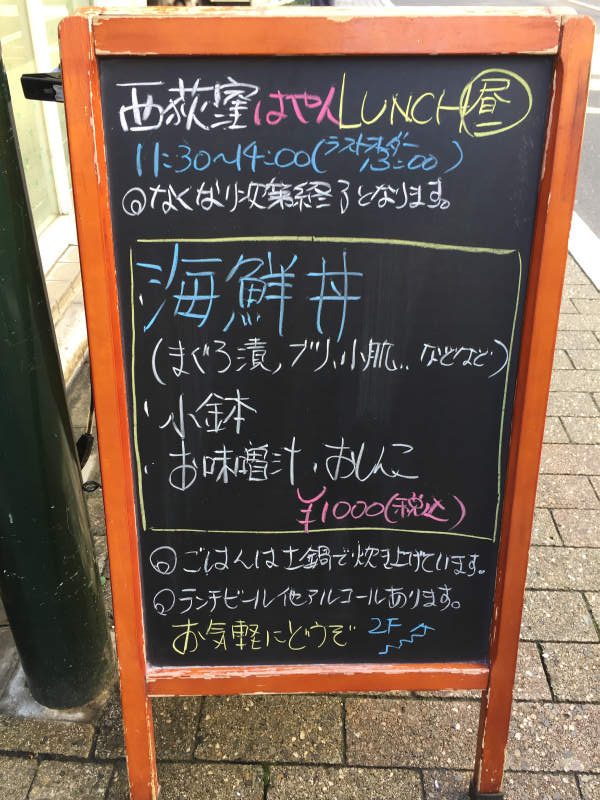 西荻窪 はやん LUNCH 昼
11:30〜14:00(ラストオーダー 13:00)
◎なくなり次第終了となります。
・海鮮丼
(まぐろ漬、ブリ、小肌... などなど)
・小鉢
・お味噌汁・おしんこ
¥1000(税込)
◎ごはんは土鍋で炊き上げています。
◎ランチビール他アルコールあります。
お気軽にどうぞ 2F